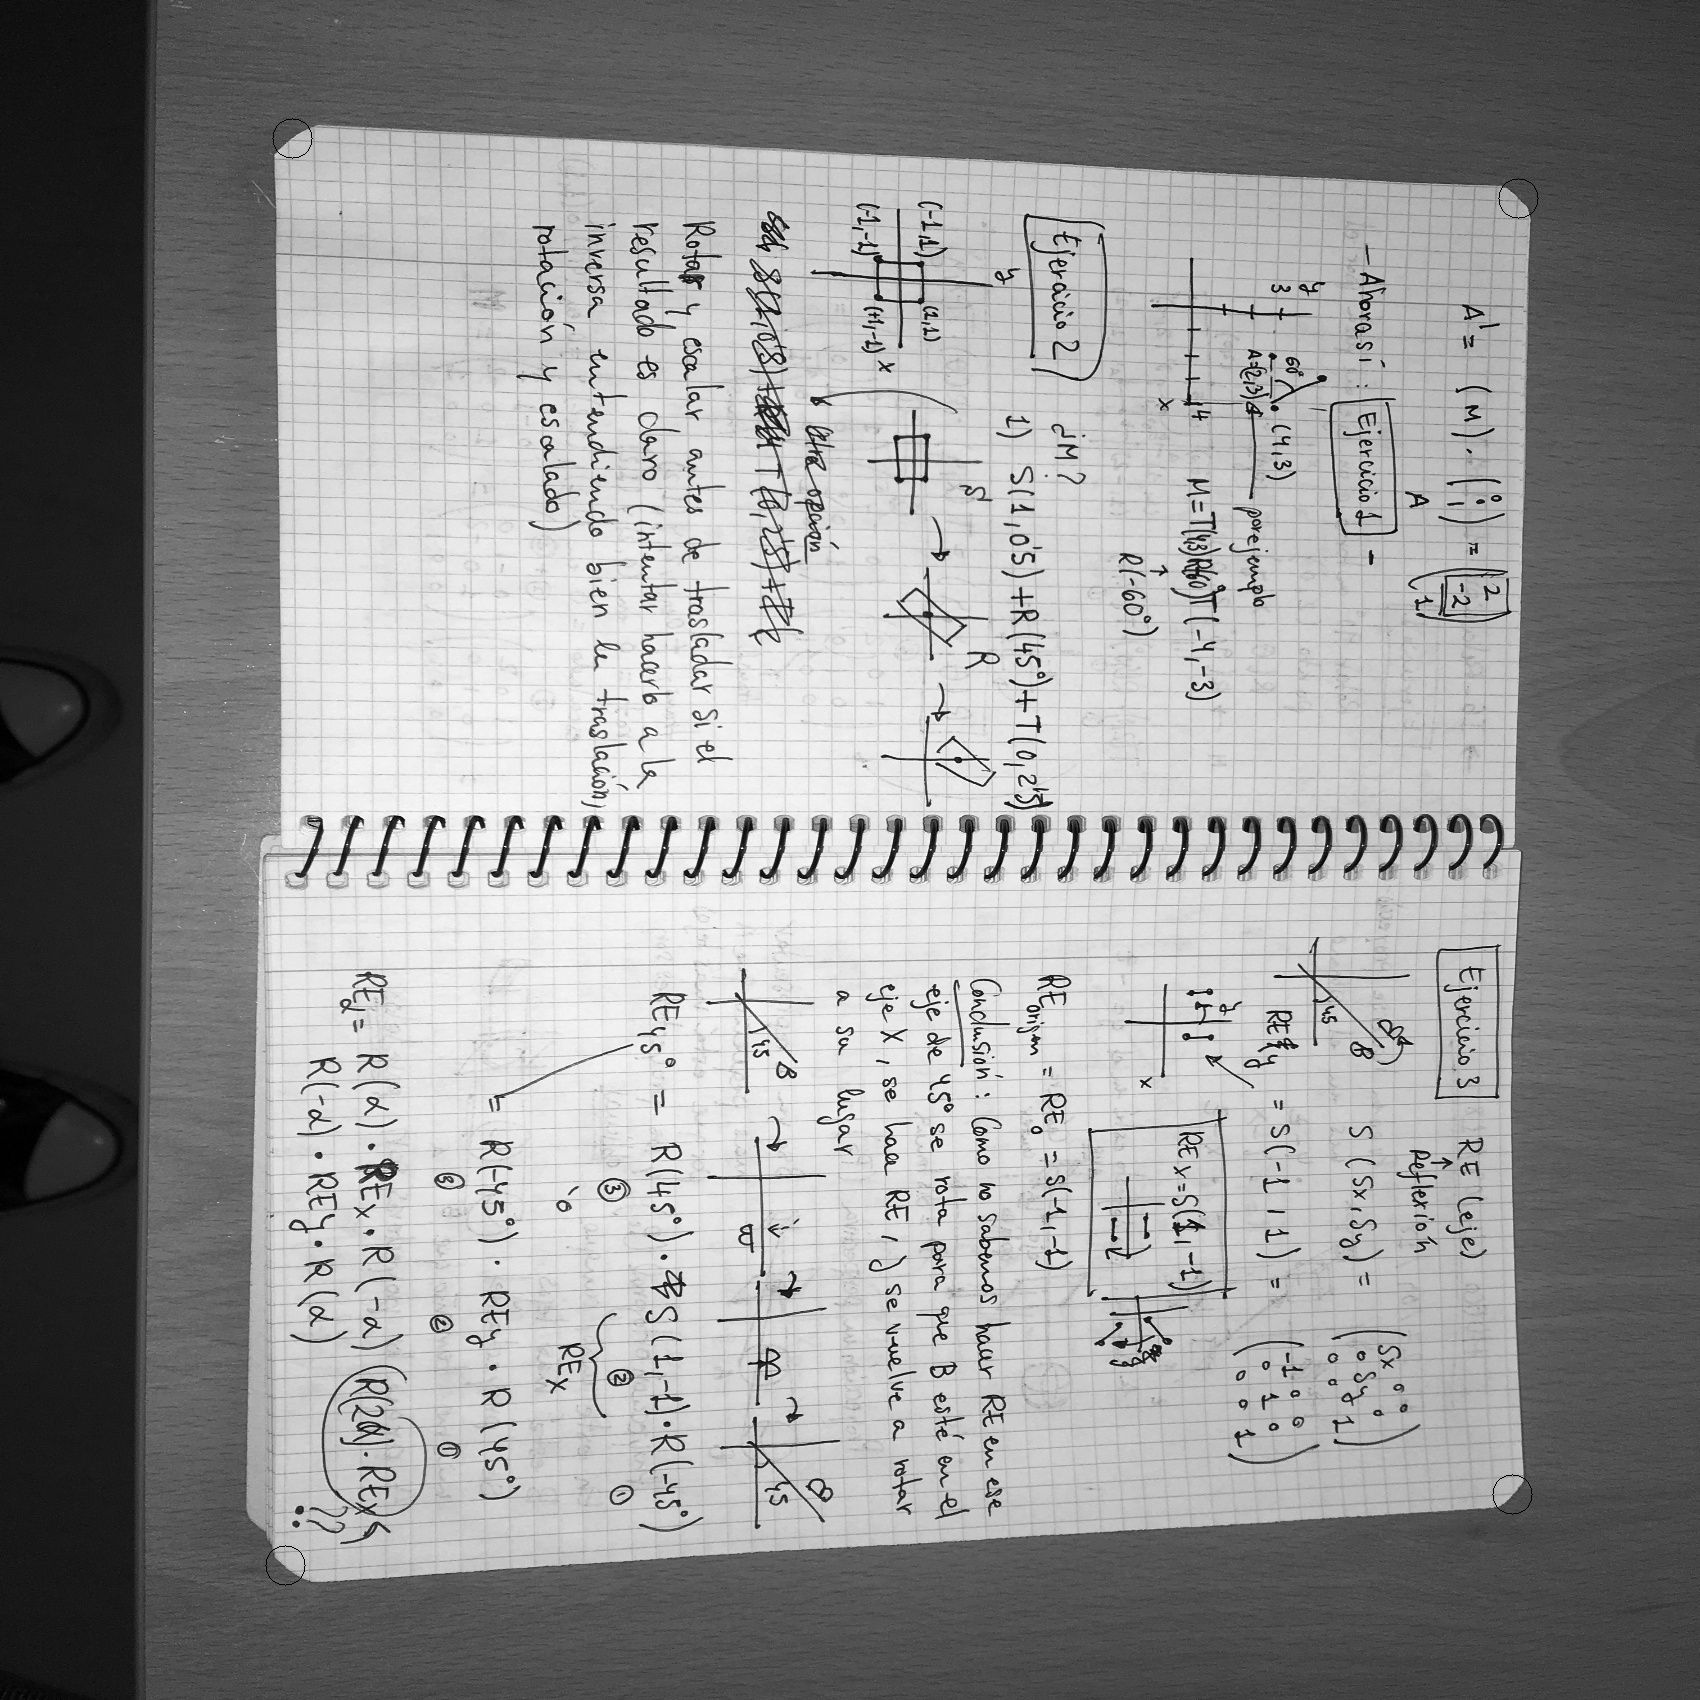 A' = (M) · (0 0 1) = (2 -2 1)
A
- Ahora sí: Ejercicio 1 -
y
3
60°
(4,3)
A=(2,3)
4
x
por ejemplo
M = T(4,3)R(60°)T(-4,-3)
R(-60°)
Ejercicio 2
¿M?
1) S(1,0'5) + R(45°) + T(0,2'5)
y
(-1,1)
(1,1)
(-1,-1)
(+1,-1)
x
S
R
Otra opción
Rotar y escalar antes de trasladar si el
resultado es claro (intentar hacerlo a la
inversa entendiendo bien la traslación,
rotación y escalado)
Ejercicio 3
RE (eje)
Reflexión
45
B
S(Sx,Sy) = (Sx 0 0
0 Sy 0
0 0 1)
REy = S(-1,1) = (-1 0 0
0 1 0
0 0 1)
y
x
REx = S(1,-1)
REorigen = RE0 = S(-1,-1)
Conclusión: Como no sabemos hacer RE en ese
eje de 45° se rota para que B esté en el
eje X, se hace RE, y se vuelve a rotar
a su lugar
45
B
B
B
45
B
RE45° = R(45°) · S(1,-1) · R(-45°)
③ ② ①
REx
ó
= R(-45°) · REy · R(45°)
③ ② ①
REα = R(α) · REx · R(-α)
R(-α) · REy · R(α)
R(2α) · REx
??